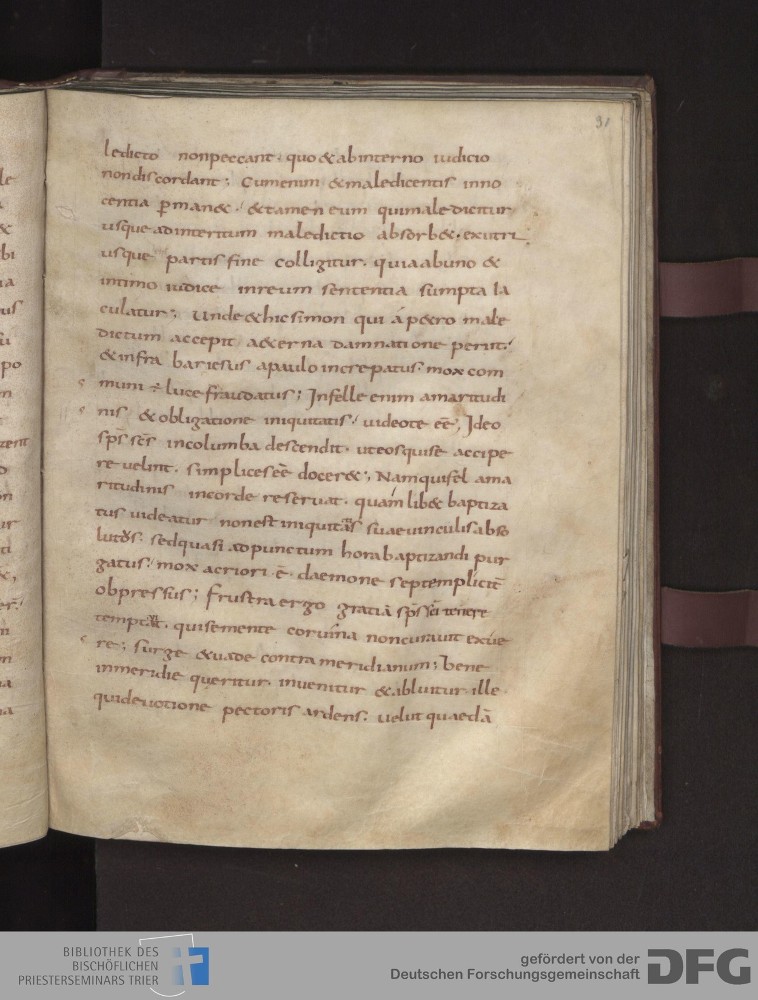 31
ledicto nonpeccant. quo & abinterno iudicio
nondiscordant; Cumenim & maledicentis inno
centia ꝑman&. & tamen eum quimaledicitur
usque adinteritum maledictio absorb&. exutri
usque partis fine colligitur. quiaabuno &
intimo iudice inreum sententia sumpta ia
culatur; Unde & hicsimon qui á p&ro male
dictum accepit a&erna damnatione periit;
& infra bariesus apaulo increpatus. mox com
muni ÷ luce fraudatus; Infelle enim amaritudi
nis & obligatione iniquitatis. video te eē; Ideo
sp̄s sc̄s incolumba descendit. uteosquise accipe
re velint. simplices eē docer&; Namquisel ama
ritudinis incorde reservat. quam lib& baptiza
tus videatur nonest iniquitatis suaevinculisabso
lutus. sedquasi adpunctum horabaptizandi pur
gatus. mox acriori ē. daemone septemplicit̄
obpressus; frustra ergo gratiā sp̄s sc̄i tenere
temptat. quisemente corvina noncuravit exue
re; Surge & vade contra meridianum; bene
inmeridie queritur. invenitur & abluitur. ille.
quidevotione pectoris ardens. velut quaedā
le
&
bi
ia
us
po
ur
ti
BIBLIOTHEK DES
BISCHÖFLICHEN
PRIESTERSEMINARS TRIER
gefördert von der
Deutschen Forschungsgemeinschaft
DFG